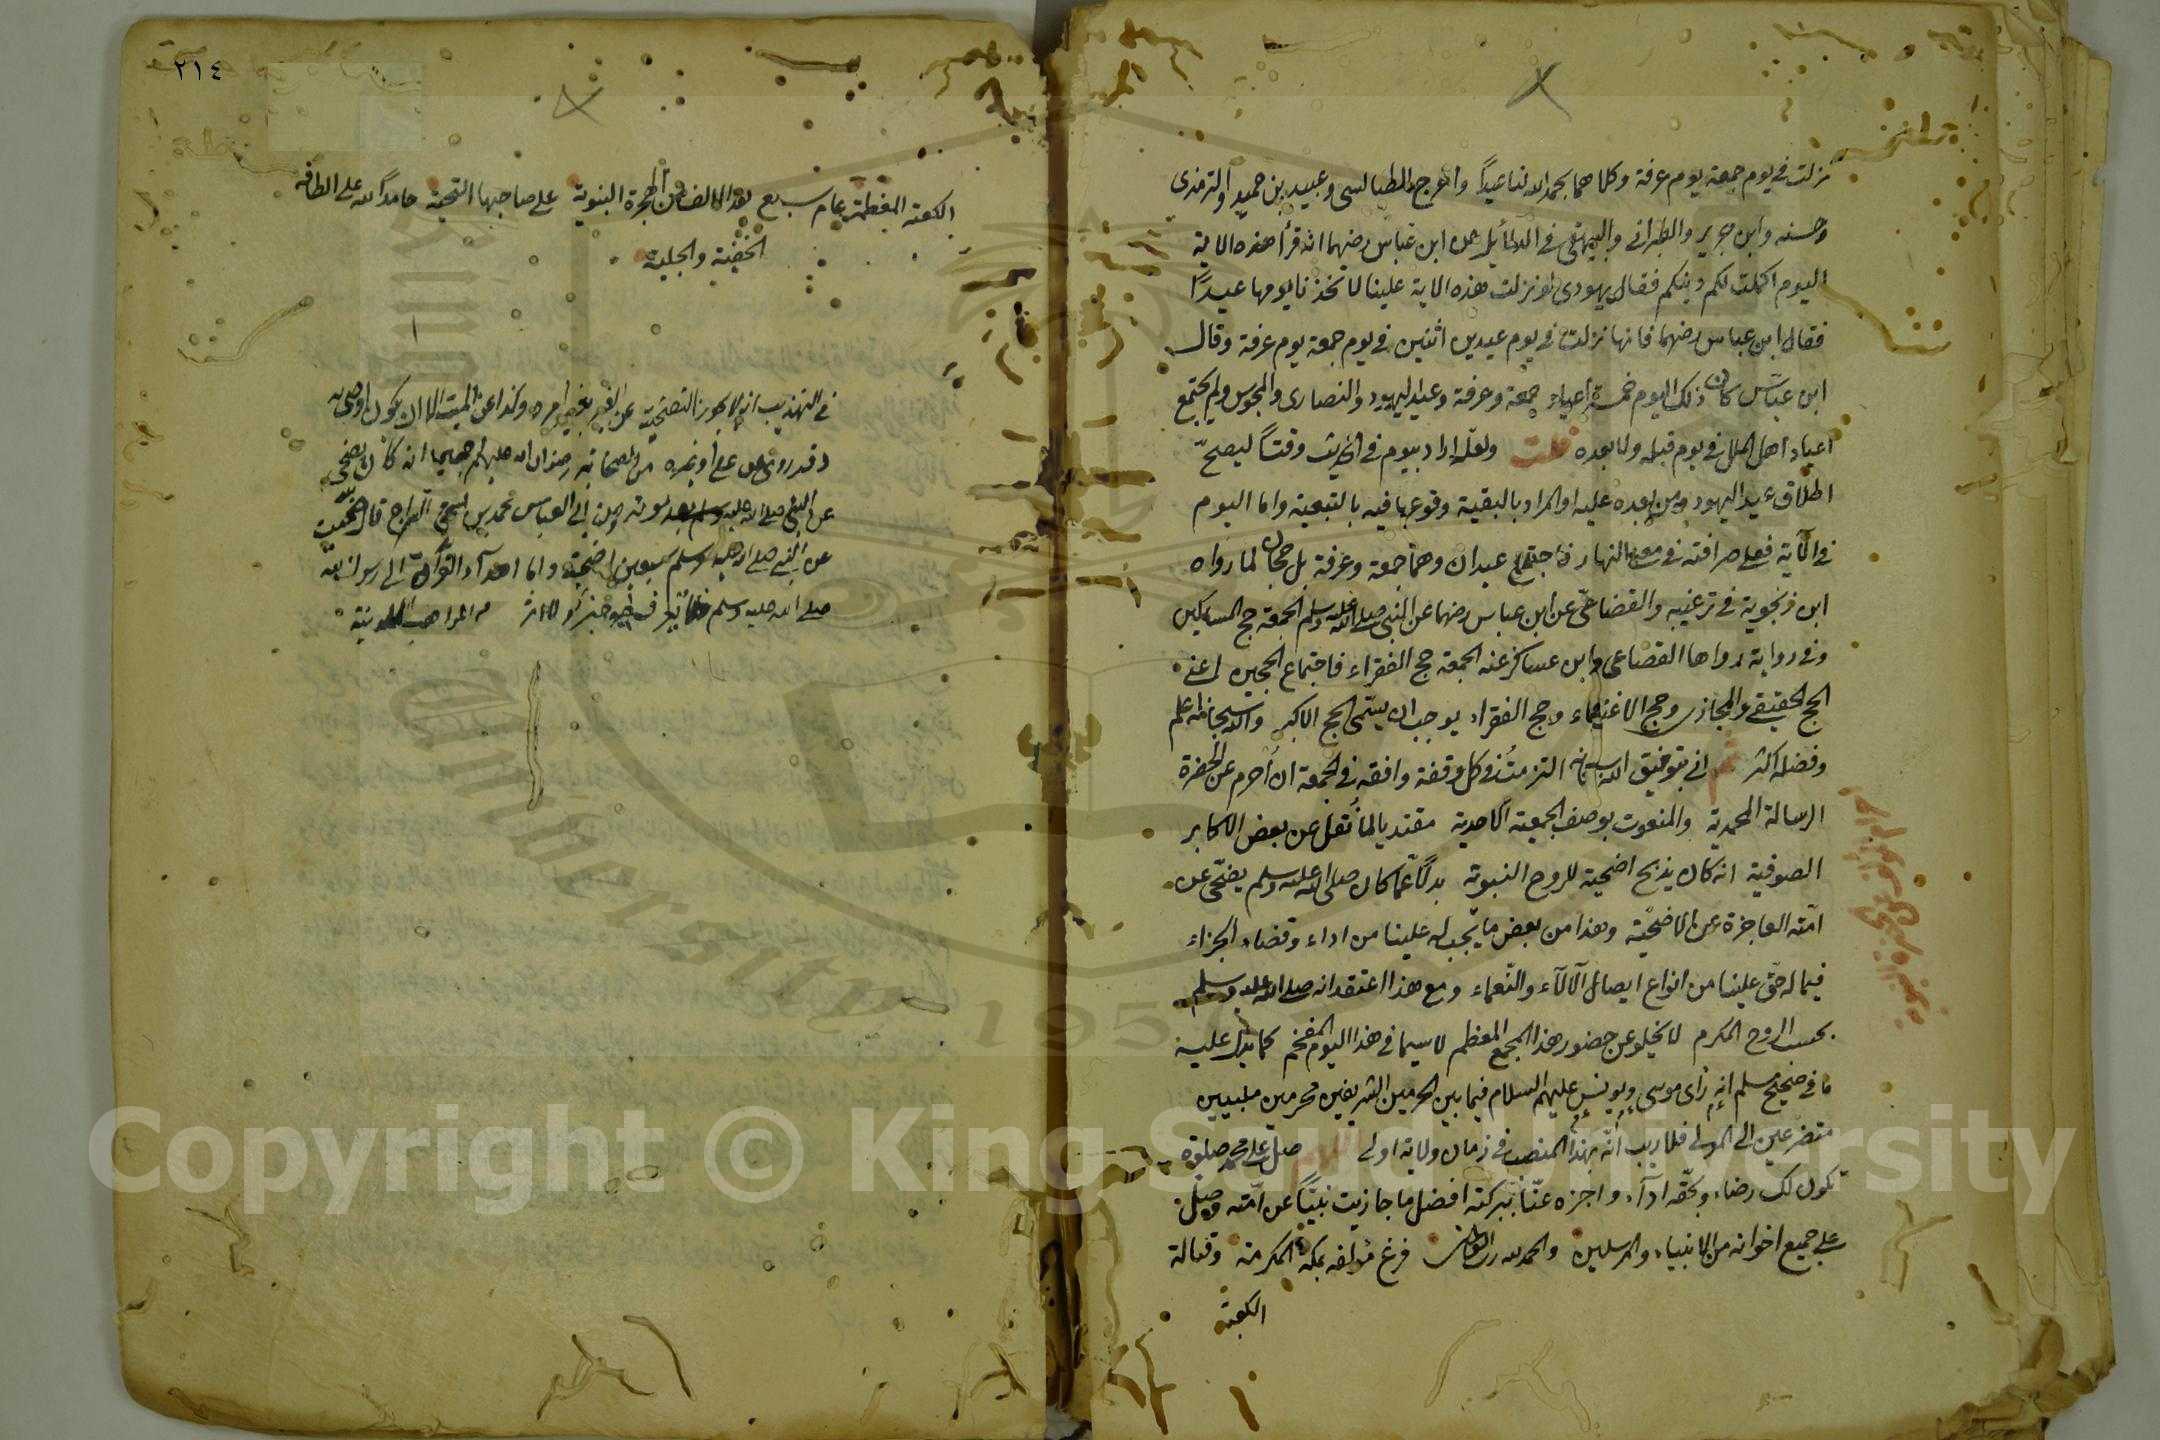 نزلت في يوم جمعة يوم عرفة وكلاهما بحمد الله لنا عيدا واخرج الطيالسي وعبيد بن حميد والترمذي
وحسنه وابن جرير والطبراني والبيهقي في الدلائل عن ابن عباس رضهما انه قرأ هذه الاية
اليوم اكملت لكم دينكم فقال يهودي لو نزلت هذه الاية علينا لاتخذنا يومها عيدًا
فقال ابن عباس رضهما فانها نزلت في يوم عيدين اثنين في يوم جمعة يوم عرفة وقال
ابن عباس كان ذلك اليوم خمسة اعياد جمعة وعرفة وعيد اليهود والنصارى والمجوس ولم يجتمع
اعياد اهل الملل في يوم قبله ولا بعده قلت ولعله اراد بيوم في الحديث وقتًا ليصحّ
اطلاق عيد اليهود ومن بعده عليه او المراد بالبقية وقوعها فيه بالتبعية واما اليوم
في الآية فعلى صرافته في معنى النهار فاجتمع عيدان وهما جمعة وعرفة بل حجان لما رواه
ابن زنجوية في ترغيبه والقضاعي عن ابن عباس رضهما عن النبي صلى الله عليه وسلم الجمعة حج المساكين
وفي رواية رواها القضاعي وابن عساكر عنه الجمعة حج الفقراء فاجتماع الحجين اعني
الحج الحقيقي والمجازي وحج الاغنياء وحج الفقراء يوجب ان يسمّى الحج الاكبر والله سبحانه اعلم
وفضله اكثر ثم اني بتوفيق الله سبحانه التزمت في كل وقفة وافقه في الجمعة ان أحرم عن الحضرة
الرسالة المحمدية والمنعوت بوصف الجمعية الاحدية مقتديا لما نُقل عن بعض الاكابر
الصوفية انه كان يذبح اضحية للروح النبوية بدلًا عما كان صلى الله عليه وسلم يضحّي عن
امّته العاجزة عن الاضحيّة وهذا من بعض ما يجب له علينا من اداء وقضاء الجزاء
فيما له حقّ علينا من انواع ايصال الآلآء والنّعماء ومع هذا اعتقد انه صلى الله عليه وسلم
بحسب الروح المكرم لا يخلو عن حضور هذا المجمع المعظم لا سيما في هذا اليوم المفخم كما يدل عليه
ما في صحيح مسلم انه رأى موسى ويونس عليهم السلام فيما بين الحرمين الشريفين محرمين ملبيين
متضرعين الى المولى فلا ريب أنّه بهذا المنصب في زمان ولاية اولى صل على محمد صلوة
تكون لك رضاء وبحقّه ادآء واجزه عنّا ببركته افضل ما جازيت نبيًّا عن امّته وصلّ
على جميع اخوانه من الانبياء والمرسلين والحمد لله رب العالمين فرغ مؤلفه بمكة المكرمة وقبالة
الكعبة
٢١٤
الكعبة المعظمة عام سبع بعد الالف من الهجرة النبوية على صاحبها التحية حامدًا لله على الطافه
الخفية والجلية
في التهذيب انه لا يجوز التضحية عن الغير بغير امره وكذا عن الميت الا ان يكون اوصى به
وقد روي عن علي او غيره من الصحابة رضوان الله عليهم اجمعين انه كان يضحي
عن النبي صلى الله عليه وسلم بعد موته وعن ابي العباس محمد بن اسحق السراج قال ضحيت
عن النبي صلى الله عليه وسلم سبعين اضحية واما اهدآء القرآن الى رسول الله
صلى الله عليه وسلم فلا يعرف فيه خبر ولا اثر من المواهب اللدنية